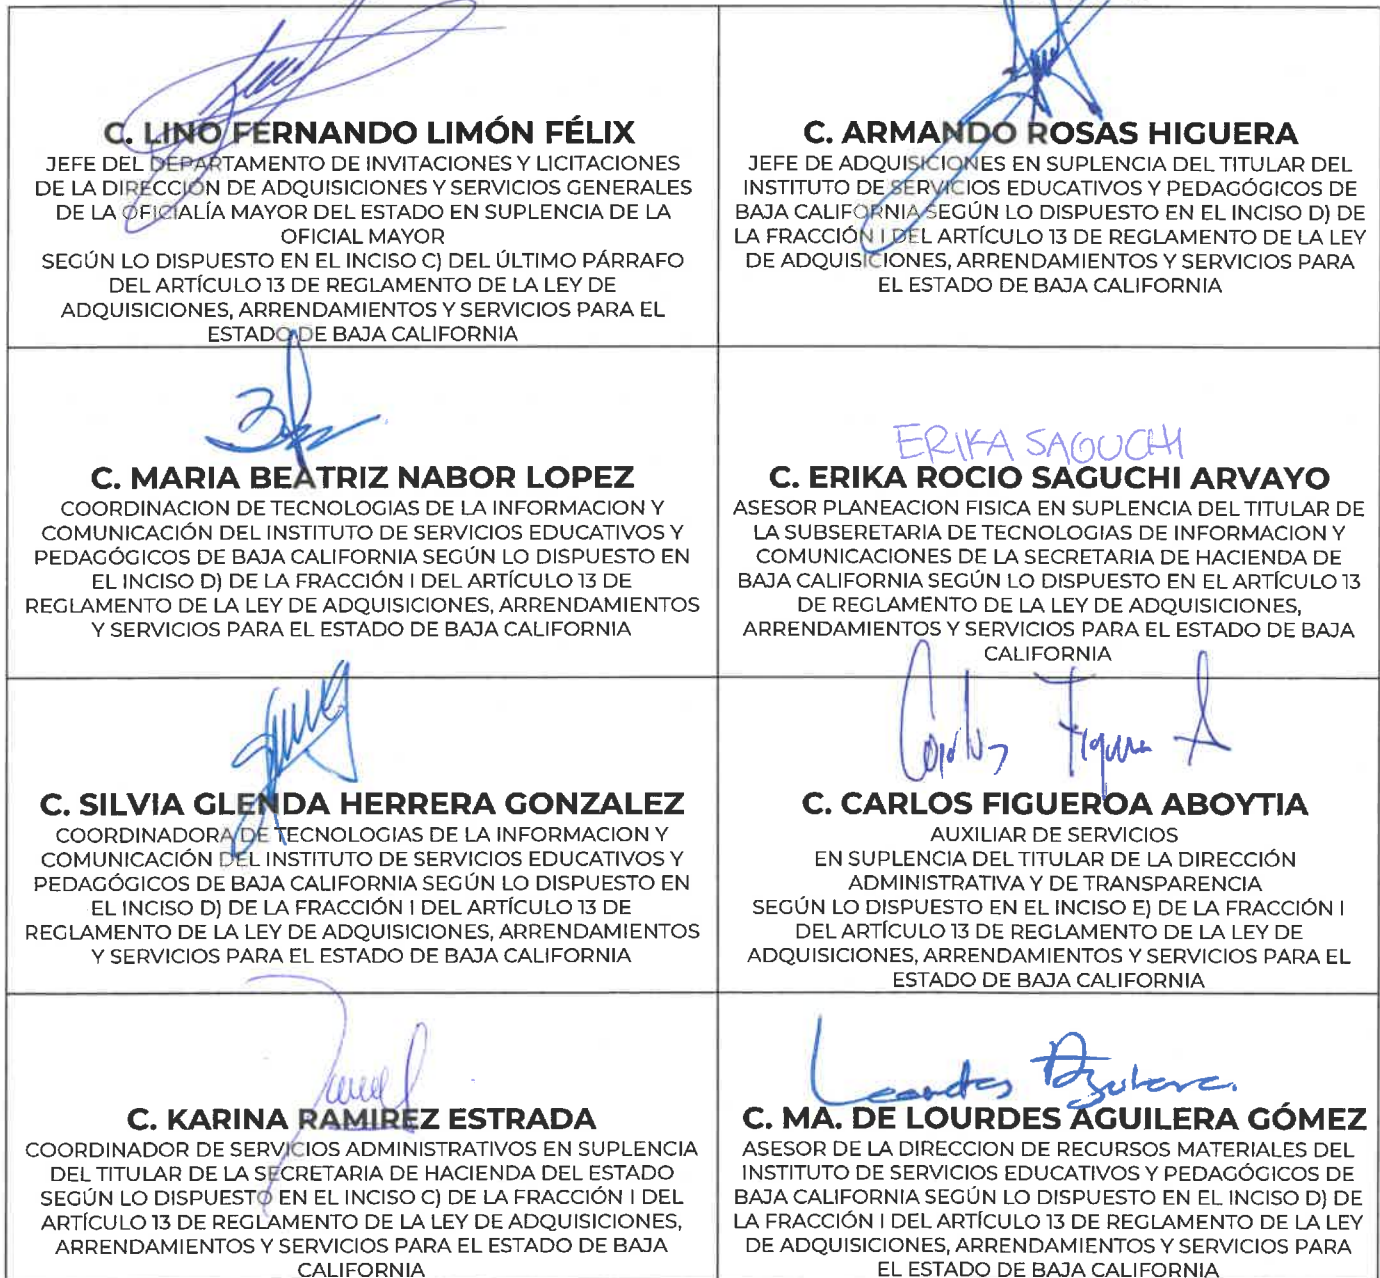 C. LINO FERNANDO LIMÓN FÉLIX
JEFE DEL DEPARTAMENTO DE INVITACIONES Y LICITACIONES
DE LA DIRECCIÓN DE ADQUISICIONES Y SERVICIOS GENERALES
DE LA OFICIALÍA MAYOR DEL ESTADO EN SUPLENCIA DE LA
OFICIAL MAYOR
SEGÚN LO DISPUESTO EN EL INCISO C) DEL ÚLTIMO PÁRRAFO
DEL ARTÍCULO 13 DE REGLAMENTO DE LA LEY DE
ADQUISICIONES, ARRENDAMIENTOS Y SERVICIOS PARA EL
ESTADO DE BAJA CALIFORNIA
C. ARMANDO ROSAS HIGUERA
JEFE DE ADQUISICIONES EN SUPLENCIA DEL TITULAR DEL
INSTITUTO DE SERVICIOS EDUCATIVOS Y PEDAGÓGICOS DE
BAJA CALIFORNIA SEGÚN LO DISPUESTO EN EL INCISO D) DE
LA FRACCIÓN I DEL ARTÍCULO 13 DE REGLAMENTO DE LA LEY
DE ADQUISICIONES, ARRENDAMIENTOS Y SERVICIOS PARA
EL ESTADO DE BAJA CALIFORNIA
C. MARIA BEATRIZ NABOR LOPEZ
COORDINACION DE TECNOLOGIAS DE LA INFORMACION Y
COMUNICACIÓN DEL INSTITUTO DE SERVICIOS EDUCATIVOS Y
PEDAGÓGICOS DE BAJA CALIFORNIA SEGÚN LO DISPUESTO EN
EL INCISO D) DE LA FRACCIÓN I DEL ARTÍCULO 13 DE
REGLAMENTO DE LA LEY DE ADQUISICIONES, ARRENDAMIENTOS
Y SERVICIOS PARA EL ESTADO DE BAJA CALIFORNIA
ERIKA SAGUCHI
C. ERIKA ROCIO SAGUCHI ARVAYO
ASESOR PLANEACION FISICA EN SUPLENCIA DEL TITULAR DE
LA SUBSERETARIA DE TECNOLOGIAS DE INFORMACION Y
COMUNICACIONES DE LA SECRETARIA DE HACIENDA DE
BAJA CALIFORNIA SEGÚN LO DISPUESTO EN EL ARTÍCULO 13
DE REGLAMENTO DE LA LEY DE ADQUISICIONES,
ARRENDAMIENTOS Y SERVICIOS PARA EL ESTADO DE BAJA
CALIFORNIA
C. SILVIA GLENDA HERRERA GONZALEZ
COORDINADORA DE TECNOLOGIAS DE LA INFORMACION Y
COMUNICACIÓN DEL INSTITUTO DE SERVICIOS EDUCATIVOS Y
PEDAGÓGICOS DE BAJA CALIFORNIA SEGÚN LO DISPUESTO EN
EL INCISO D) DE LA FRACCIÓN I DEL ARTÍCULO 13 DE
REGLAMENTO DE LA LEY DE ADQUISICIONES, ARRENDAMIENTOS
Y SERVICIOS PARA EL ESTADO DE BAJA CALIFORNIA
Carlos Figueroa A
C. CARLOS FIGUEROA ABOYTIA
AUXILIAR DE SERVICIOS
EN SUPLENCIA DEL TITULAR DE LA DIRECCIÓN
ADMINISTRATIVA Y DE TRANSPARENCIA
SEGÚN LO DISPUESTO EN EL INCISO E) DE LA FRACCIÓN I
DEL ARTÍCULO 13 DE REGLAMENTO DE LA LEY DE
ADQUISICIONES, ARRENDAMIENTOS Y SERVICIOS PARA EL
ESTADO DE BAJA CALIFORNIA
C. KARINA RAMIREZ ESTRADA
COORDINADOR DE SERVICIOS ADMINISTRATIVOS EN SUPLENCIA
DEL TITULAR DE LA SECRETARIA DE HACIENDA DEL ESTADO
SEGÚN LO DISPUESTO EN EL INCISO C) DE LA FRACCIÓN I DEL
ARTÍCULO 13 DE REGLAMENTO DE LA LEY DE ADQUISICIONES,
ARRENDAMIENTOS Y SERVICIOS PARA EL ESTADO DE BAJA
CALIFORNIA
C. MA. DE LOURDES AGUILERA GÓMEZ
ASESOR DE LA DIRECCION DE RECURSOS MATERIALES DEL
INSTITUTO DE SERVICIOS EDUCATIVOS Y PEDAGÓGICOS DE
BAJA CALIFORNIA SEGÚN LO DISPUESTO EN EL INCISO D) DE
LA FRACCIÓN I DEL ARTÍCULO 13 DE REGLAMENTO DE LA LEY
DE ADQUISICIONES, ARRENDAMIENTOS Y SERVICIOS PARA
EL ESTADO DE BAJA CALIFORNIA